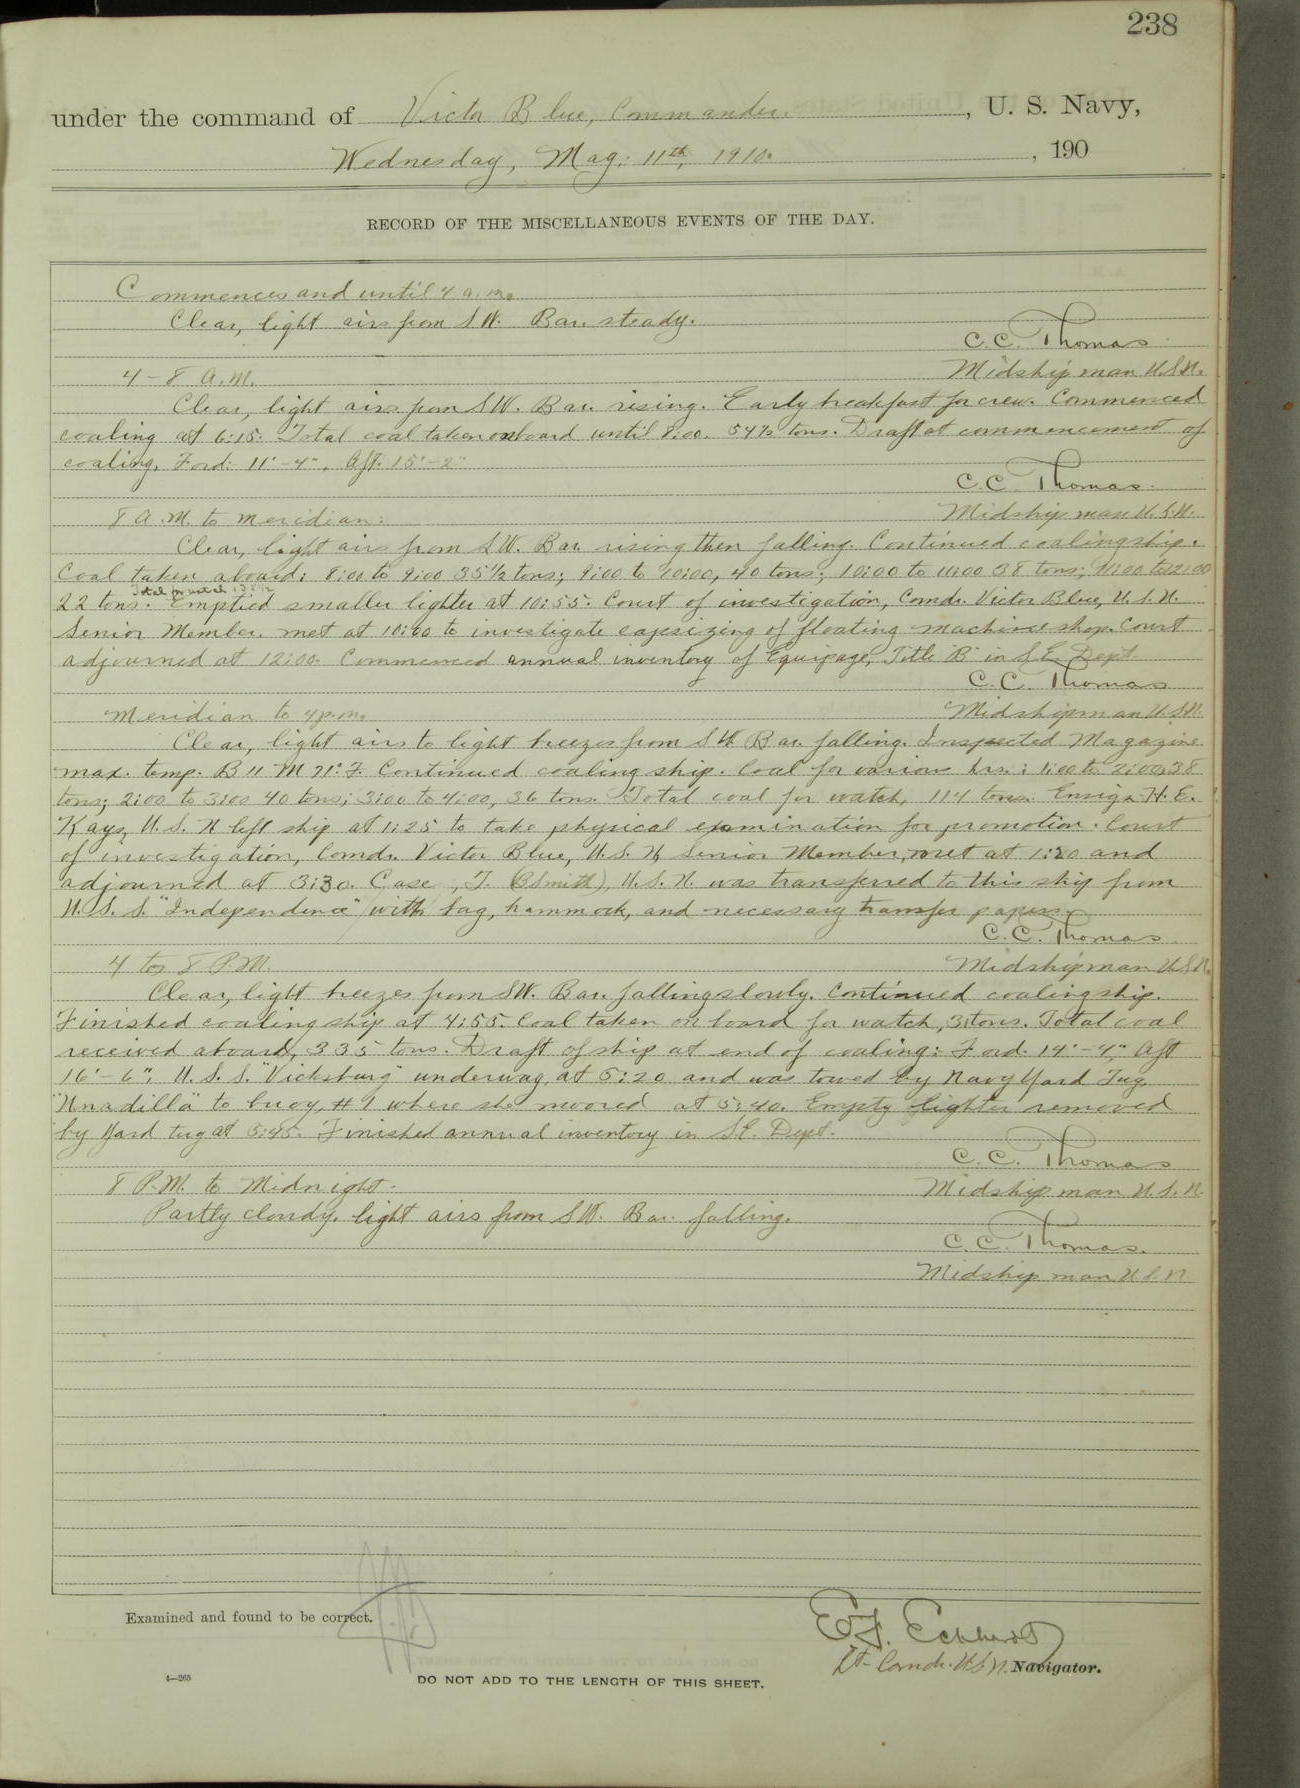 238
under the command of Victor Blue, Commander. , U. S. Navy,
Wednesday, May. 11th, 1910. , 190
RECORD OF THE MISCELLANEOUS EVENTS OF THE DAY.
Commences and until 4 a.m.
Clear, light airs from SW. Bar. steady.
C. C. Thomas
Midshipman U.S.N.
4 – 8 A.M.
Clear, light airs from SW. Bar. rising. Early breakfast for crew. Commenced
coaling at 6:15. Total coal taken onboard until 8:00. 54½ tons. Draft at commencement of
coaling, Ford: 11'–4", Aft. 15'–2"
C. C. Thomas
Midshipman U.S.N.
8 A.M. to meridian:
Clear, light airs from SW. Bar. rising then falling. Continued coaling ship.
Coal taken aboard: 8:00 to 9:00 35½ tons; 9:00 to 10:00, 40 tons; 10:00 to 11:00 38 tons; 11:00 to 12:00
Total for watch 135½
22 tons. Emptied smaller lighter at 10:55. Court of investigation, Comdr. Victor Blue, U.S.N.
Senior Member. met at 10:00 to investigate capsizing of floating machine shop. Court
adjourned at 12:00. Commenced annual inventory of Equipage, Title "B" in S.E. Dept.
C. C. Thomas
Midshipman U.S.N.
Meridian to 4 p.m.
Clear, light airs to light breezes from SW Bar. falling. Inspected Magazine
max. temp. B 11 M 71° F. Continued coaling ship. Coal for various hrs.: 1:00 to 2:00, 38
tons; 2:00 to 3:00 40 tons; 3:00 to 4:00, 36 tons. Total coal for watch, 114 tons. Ensign H. E.
Kays, U.S.N left ship at 1:25 to take physical examination for promotion. Court
of investigation, Comdr. Victor Blue, U.S.N, Senior Member, met at 1:20 and
adjourned at 3:30. Case, T. (B Smith), U.S.N. was transferred to this ship from
U.S.S. "Independence" with bag, hammock, and necessary transfer papers.
C. C. Thomas
Midshipman U.S.N.
4 to 8 P.M.
Clear, light breezes from SW. Bar. falling slowly. Continued coaling ship.
Finished coaling ship at 4:55. Coal taken on board for watch, 31 tons. Total coal
received aboard, 335 tons. Draft of ship at end of coaling: Ford. 14'–4", Aft
16'–6". U.S.S. "Vicksburg" underway, at 5:20 and was towed by Navy Yard Tug
"Unadilla" to buoy, #1 where she moored at 5:40. Empty lighter removed
by Yard tug at 5:45. Finished annual inventory in S.E. Dept.
C. C. Thomas
Midshipman U.S.N.
8 P.M. to Midnight.
Partly cloudy, light airs from SW. Bar. falling.
C. C. Thomas.
Midshipman U.S.N.
Examined and found to be correct.
E. F. Eckhardt
Lt. Comdr. U.S.N. Navigator.
4—265
DO NOT ADD TO THE LENGTH OF THIS SHEET.